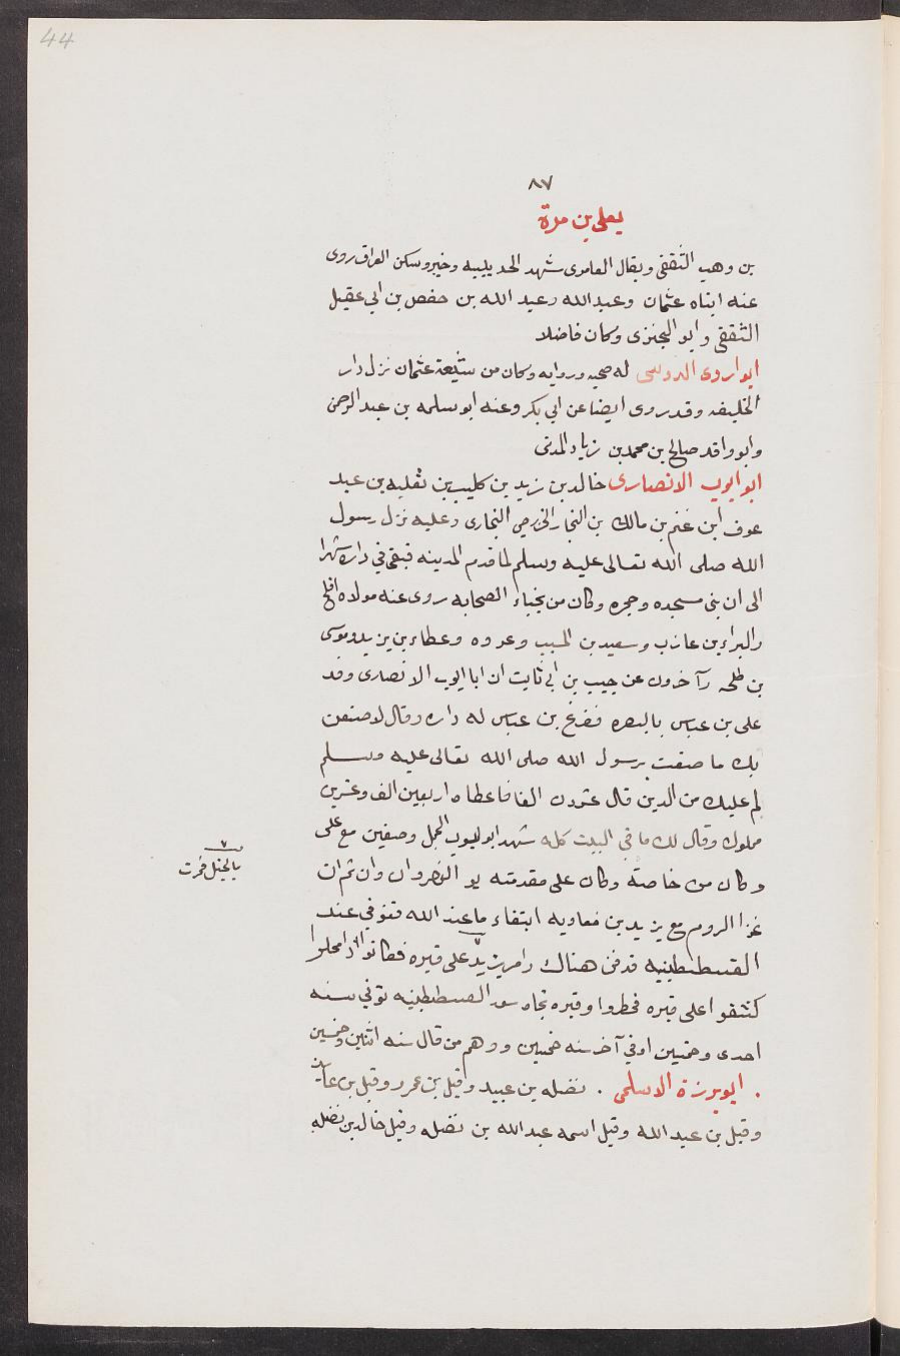 44
٨٧
يعلى بن مرة
بن وهب الثقفى ويقال العامرى شهد الحديبيه وخيبر وسكن العراق روى
عنه ابناه عثمان وعبد الله وعبد الله بن حفص بن ابي عقيل
الثقفى وابو البخترى وكان فاضلا
ابو اروى الدوسى له صحبه وروايه وكان من شيعة عثمان نزل دار
الخليفه وقد روى ايضا عن ابي بكر وعنه ابو سلمه بن عبد الرحمن
وابو واقد صالح بن محمد بن زياد المدنى
ابو ايوب الانصارى خالد بن زيد بن كليب بن ثعلبه بن عبد
عوف ابن غنم بن مالك بن النجار الخزرجى النجارى وعليه نزل رسول
الله صلى الله تعالى عليه وسلم لما قدم المدينه فبقى في داره شهرا
الى ان بنى مسجده وحجره وكان من نجباء الصحابه روى عنه مولاه افلح
والبراء بن عازب وسعيد بن المسيب وعروه وعطاء بن يزيد وموسى
بن طلحه وآخرون عن حبيب بن ابي ثابت ان ابا ايوب الانصارى وفد
على بن عباس بالبصره ففرغ بن عباس له داره وقال لاصنعن
بك ما صنعت برسول الله صلى الله تعالى عليه وسلم
لم عليك من الدين قال عشرون الفا فاعطاه اربعين الف وعشرين
مملوك وقال لك ما في البيت كله شهد ابو ايوب الجمل وصفين مع على
وكان من خاصته وكان على مقدمته يو النهروان وان ثم ان
غزا الروم مع يزيد بن معاويه ابتغاء ما عند الله فتوفي عند
القسطنطينيه فدفن هناك وامر يزيد على قبره فكانوا اذا امحلوا
كشفوا على قبره فمطروا وقبره تجاه سور القسطنطينيه توفي سنه
احدى وخمسين او في آخر سنه خمسين ووهم من قال سنه اثنين وخمسين
. ابو برزة الاسلمى . نضله بن عبيد وقيل بن عمرو وقيل بن عايذ
وقيل بن عبد الله وقيل اسمه عبد الله بن نضله وقيل خالد بن نضله
بالخيل فمرت